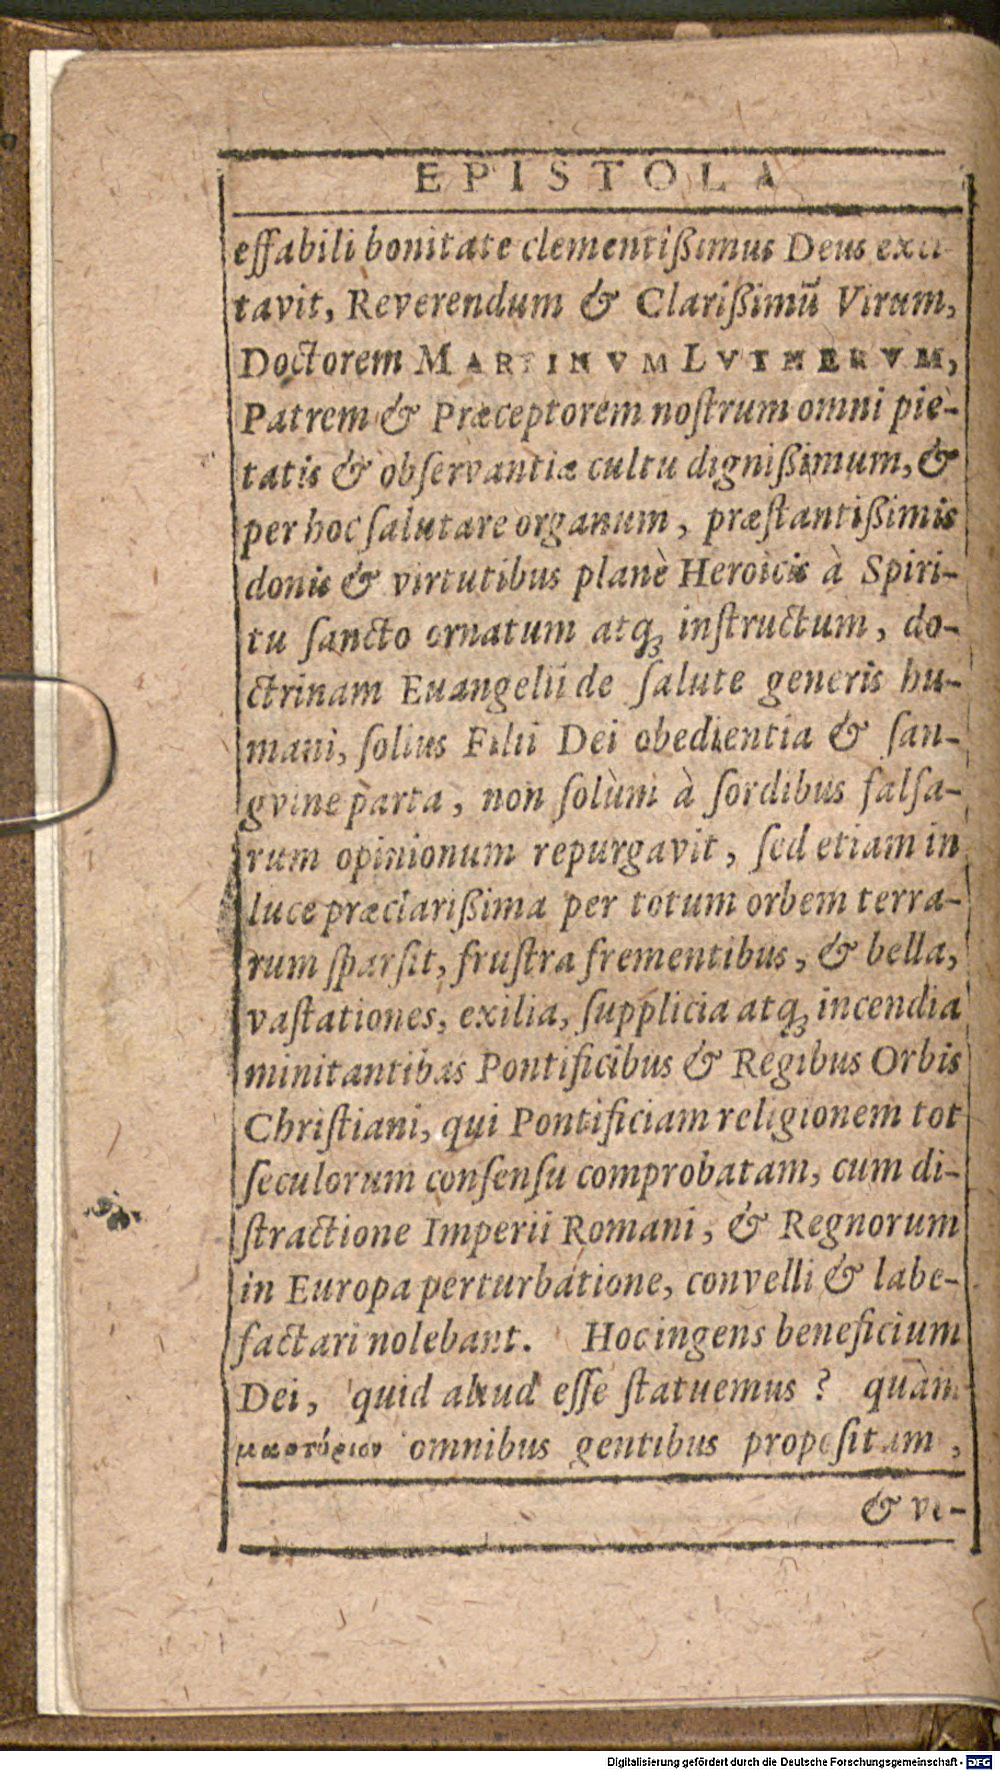 EPISTOLA
effabili bonitate clementißimus Deus exci-
tavit, Reverendum & Clarißimū Virum,
Doctorem MARTINVM LVTHERVM,
Patrem & Præceptorem noſtrum omni pie-
tatis & obſervantiæ cultu dignißimum, &
per hoc ſalutare organum, præſtantißimis
donis & virtutibus planè Heroicis à Spiri-
tu ſancto ornatum atq́ꝫ inſtructum, do-
ctrinam Euangelii de ſalute generis hu-
mani, ſolius Filii Dei obedientia & ſan-
gvine parta, non ſolùm à ſordibus falſa-
rum opinionum repurgavit, ſed etiam in
luce præclarißima per totum orbem terra-
rum ſparſit, fruſtra frementibus, & bella,
vaſtationes, exilia, ſupplicia atq́ꝫ incendia
minitantibus Pontificibus & Regibus Orbis
Chriſtiani, qui Pontificiam religionem tot
ſeculorum conſenſu comprobatam, cum di-
ſtractione Imperii Romani, & Regnorum
in Europa perturbatione, convelli & labe-
factari nolebant. Hoc ingens beneficium
Dei, quid aliud eſſe ſtatuemus? quàm
μαρτύριον omnibus gentibus propoſitum,
& ve-
Digitalisierung gefördert durch die Deutsche Forschungsgemeinschaft - DFG